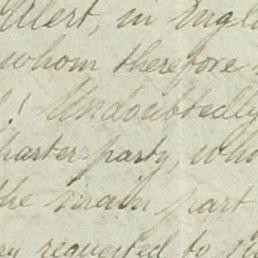 Alert, in Engla
whom therefore
! Undoubtedly
harter-party, who
the main part
ry requested to